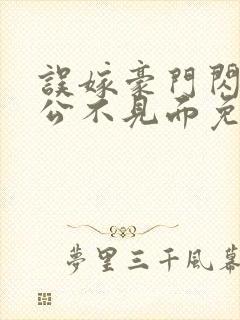 誤嫁豪門閃
公不見面免
夢里三千風幕